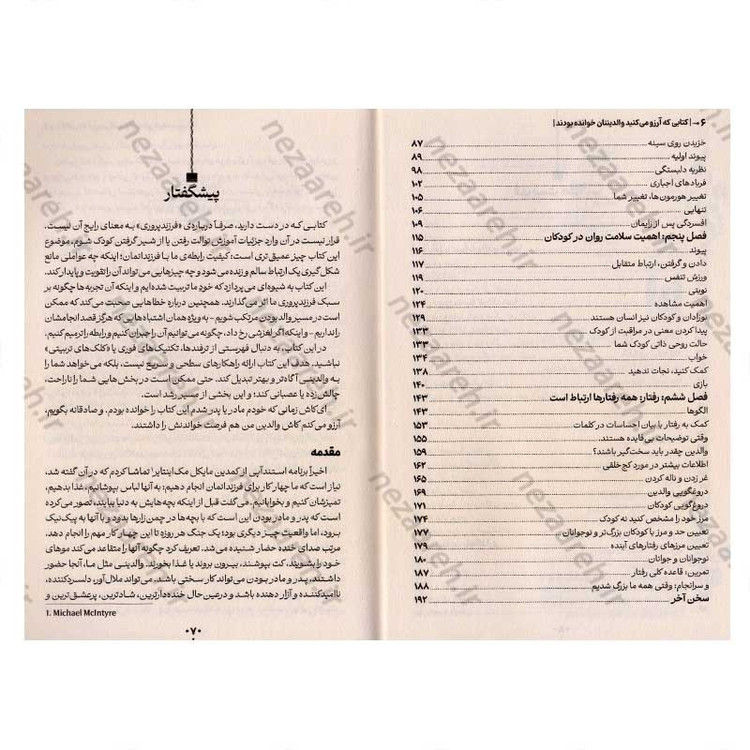 ۶ → | کتابی که آرزو می‌کنید والدینتان خوانده بودند |
خزیدن روی سینه ۸۷
پیوند اولیه ۸۹
نظریه دلبستگی ۹۸
فریادهای اجباری ۱۰۲
تغییر هورمون‌ها، تغییر شما ۱۰۵
تنهایی ۱۰۶
افسردگی پس از زایمان ۱۰۹
فصل پنجم: اهمیت سلامت روان در کودکان ۱۱۵
پیوند ۱۱۶
دادن و گرفتن، ارتباط متقابل ۱۱۷
ورزش تنفس ۱۱۹
نوبتی ۱۲۰
اهمیت مشاهده ۱۲۴
نوزادان و کودکان نیز انسان هستند ۱۲۹
پیدا کردن معنی در مراقبت از کودک ۱۳۳
حالت روحی ذاتی کودک شما ۱۳۳
خواب ۱۳۴
کمک کنید، نجات ندهید ۱۳۸
بازی ۱۴۰
فصل ششم: رفتار: همه رفتارها ارتباط است ۱۴۳
الگوها ۱۴۳
کمک به رفتار با بیان احساسات در کلمات ۱۵۳
وقتی توضیحات بی‌فایده هستند. ۱۵۵
والدین چقدر باید سخت‌گیر باشند؟ ۱۵۹
اطلاعات بیشتر در مورد کج‌خلقی ۱۶۲
غر زدن و ناله کردن ۱۶۵
دروغگویی والدین ۱۶۹
دروغگویی کودکان ۱۷۱
مرز خود را مشخص کنید نه کودک ۱۷۴
تعیین حد و مرز با کودکان بزرگ‌تر و نوجوانان ۱۷۷
تعیین مرزهای رفتارهای آینده ۱۷۹
نوجوانان و جوانان ۱۸۰
تمرین، قاعده کلی رفتار ۱۸۷
و سرانجام: وقتی همه ما بزرگ شدیم ۱۸۸
سخن آخر ۱۹۲
پیشگفتار
کتابی که در دست دارید، صرفاً درباره‌ی «فرزندپروری» به معنای رایج آن نیست.
قرار نیست در آن وارد جزئیات آموزش توالت رفتن یا از شیر گرفتن کودک شوم. موضوع
این کتاب چیز عمیق تری است: کیفیت رابطه‌ی ما با فرزندانمان؛ اینکه چه عواملی مانع
شکل‌گیری یک ارتباط سالم و زنده می‌شود و چه چیزهایی می‌تواند آن را تقویت و پایدار کند.
این کتاب به شیوه‌ای می‌پردازد که خودِ ما تربیت شده‌ایم و اینکه آن تجربه‌ها چگونه بر
سبک فرزندپروری ما اثر می‌گذارند. همچنین درباره خطاهایی صحبت می‌کند که ممکن
است در مسیر والد بودن مرتکب شویم - به‌ویژه همان اشتباه‌هایی که هرگز قصد انجامشان
را نداریم - و اینکه اگر لغزشی رخ داد، چگونه می‌توانیم آن را جبران کنیم و رابطه را ترمیم کنیم.
در این کتاب، به دنبال فهرستی از ترفندها، تکنیک‌های فوری یا «کلک‌های تربیتی»
نباشید. هدف این کتاب ارائه راهکارهای سطحی و سریع نیست، بلکه می‌خواهد شما را
به والدینی آگاه‌تر و بهتر تبدیل کند. حتی ممکن است در بخش‌هایی شما را ناراحت،
چالش‌زده یا عصبانی کند؛ و این بخشی از مسیر رشد است.
ای‌کاش زمانی که خودم مادر یا پدر شدم این کتاب را خوانده بودم. و صادقانه بگویم،
آرزو می‌کنم کاش والدین من هم فرصت خواندنش را داشتند.
مقدمه
اخیراً برنامه استندآپی از کمدین مایکل مک‌اینتایر۱ تماشا کردم که در آن گفته شد،
نیاز است که ما چهار کار برای فرزندانمان انجام دهیم: به آنها لباس بپوشانیم، غذا بدهیم،
تمیزشان کنیم و بخوابانیم. می‌گفت قبل از اینکه بچه‌هایش به دنیا بیایند، تصور می‌کرده
است که پدر و مادر بودن این است که با بچه‌ها در چمن‌زارها بدود و با آنها به پیک‌نیک
برود، اما واقعیت چیز دیگری بوده: یک جنگ هر روزه تا این چهار کار مهم را انجام دهد.
مرتب صدای خنده حضار شنیده می‌شد. تعریف کرد چگونه آنها را متقاعد می‌کند موهای
خود را بشویند، کت بپوشند، بیرون بروند یا غذا بخورند. والدینی مثل ما، آنجا حضور
داشتند. پدر و مادر بودن می‌تواند کار سختی باشد، می‌تواند ملال‌آور، دلسردکننده،
ناامیدکننده و آزار دهنده باشد و درعین حال خنده‌دارترین، شادترین، پرعشق‌ترین و
1. Michael McIntyre
۰۷۰
nezaareh.ir
nezaareh.ir
nezaareh.ir
nezaareh.ir
nezaareh.ir
nezaareh.ir